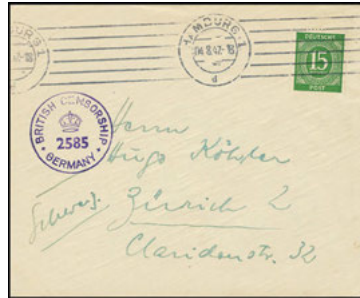 HAMBURG 1
14.8.47.-18
d
DEUTSCHE
15
POST
BRITISH CENSORSHIP
2585
GERMANY
Herrn
Hugo Köhler
Schweiz.
Zürich 2
Claridenstr. 32